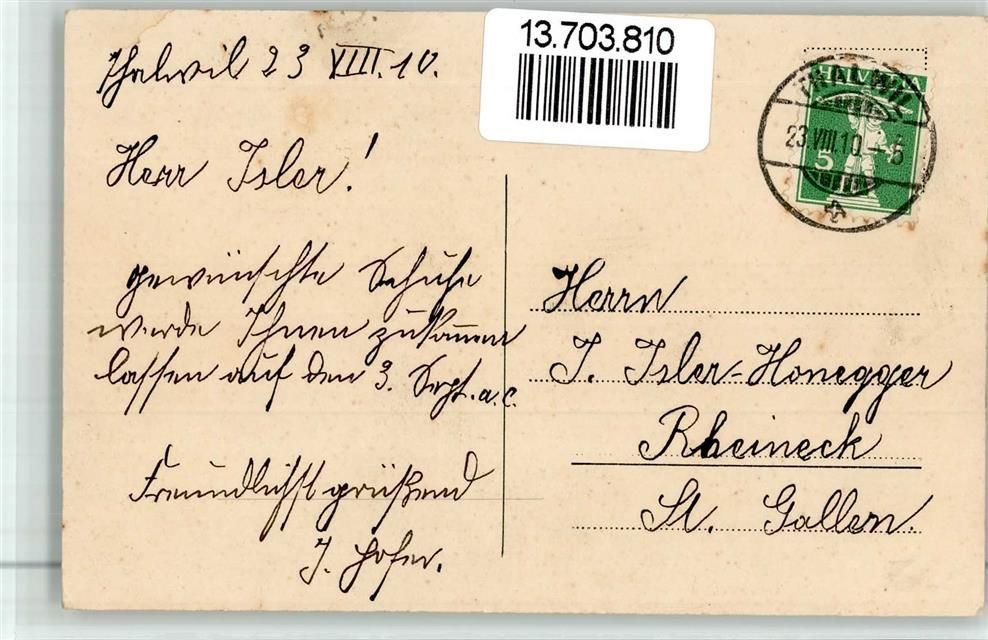 13.703.810
Thalwil 23 VIII.10.
Herr Isler!
gewünschte Schuhe
werde Ihnen zukommen
lassen auf den 3. Sept. a.c.
Freundlichst grüßend
J. Hofer.
HELVETIA
5
THALWIL
23.VIII.10.-6
Herrn
J. Isler-Honegger
Rheineck
St. Gallen.